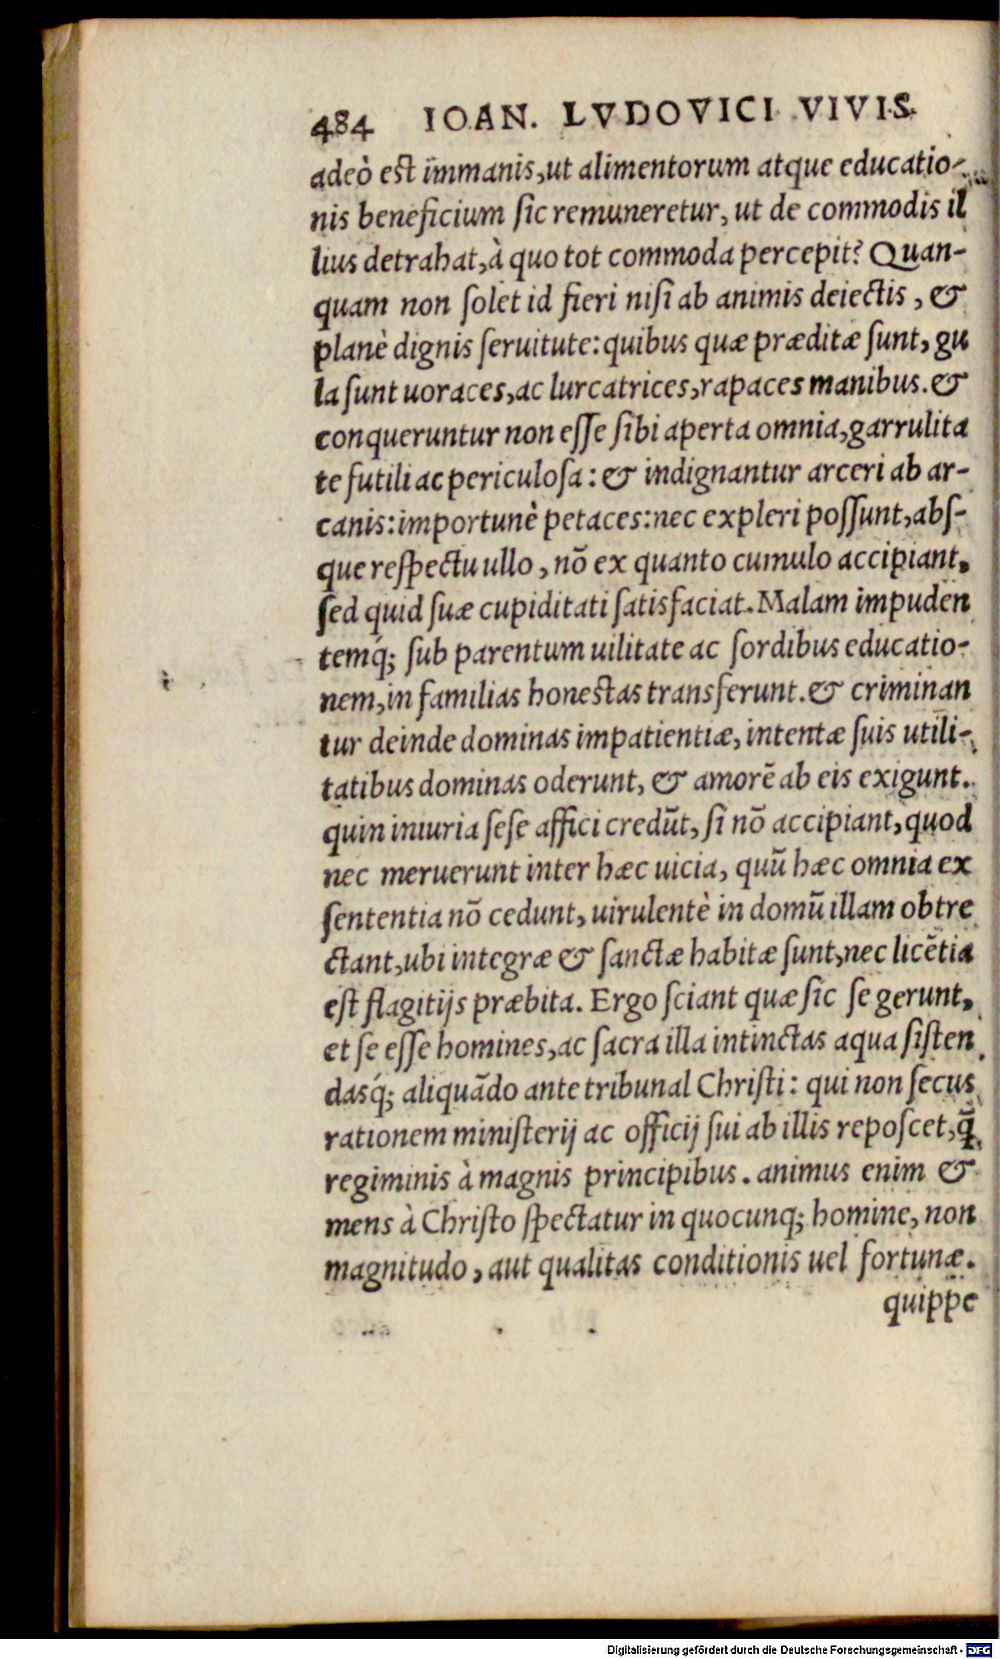 484 IOAN. LVDOVICI VIVIS
adeò est immanis, ut alimentorum atque educatio-
nis beneficium sic remuneretur, ut de commodis il
lius detrahat, à quo tot commoda percepit? Quan-
quam non solet id fieri nisi ab animis deiectis, &
planè dignis seruitute: quibus quæ præditæ sunt, gu
la sunt uoraces, ac lurcatrices, rapaces manibus. &
conqueruntur non esse sibi aperta omnia, garrulita
te futili ac periculosa: & indignantur arceri ab ar-
canis: importunè petaces: nec expleri possunt, abs-
que respectu ullo, nõ ex quanto cumulo accipiant,
sed quid suæ cupiditati satisfaciat. Malam impuden
temq́; sub parentum uilitate ac sordibus educatio-
nem, in familias honestas transferunt. & criminan
tur deinde dominas impatientiæ, intentæ suis utili-
tatibus dominas oderunt, & amorẽ ab eis exigunt.
quin iniuria sese affici credũt, si nõ accipiant, quod
nec meruerunt inter hæc uicia, quũ hæc omnia ex
sententia nõ cedunt, uirulentè in domũ illam obtre
ctant, ubi integræ & sanctæ habitæ sunt, nec licẽtia
est flagitijs præbita. Ergo sciant quæ sic se gerunt,
et se esse homines, ac sacra illa intinctas aqua sisten
dasq́; aliquãdo ante tribunal Christi: qui non secus
rationem ministerij ac officij sui ab illis reposcet, q̃
regiminis à magnis principibus. animus enim &
mens à Christo spectatur in quocunq; homine, non
magnitudo, aut qualitas conditionis uel fortunæ.
quippe
Digitalisierung gefördert durch die Deutsche Forschungsgemeinschaft - DFG